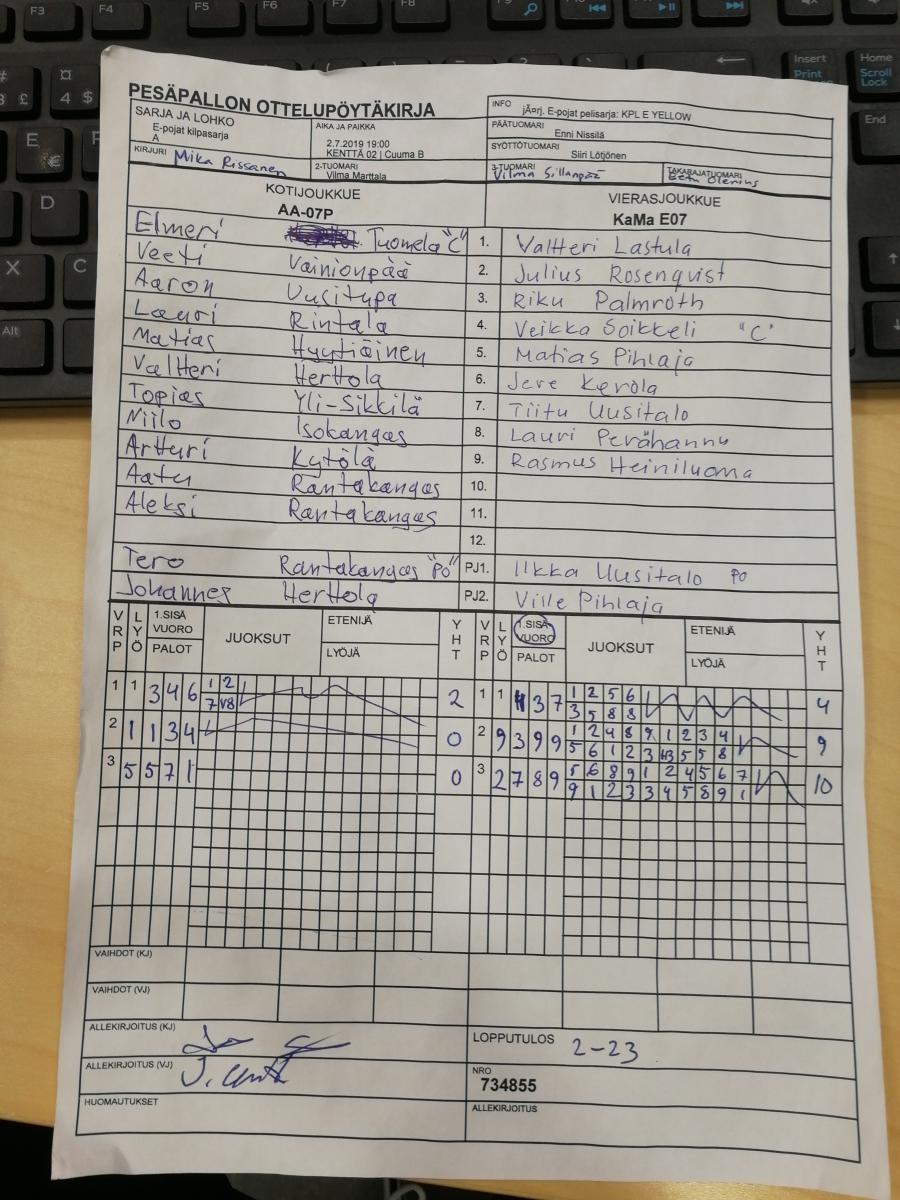 PESÄPALLON OTTELUPÖYTÄKIRJA
SARJA JA LOHKO
E-pojat kilpasarja
A
AIKA JA PAIKKA
2.7.2019 19:00
KENTTÄ 02 | Cuuma B
INFO
jÄ¤rj. E-pojat pelisarja: KPL E YELLOW
PÄÄTUOMARI
Enni Nissilä
SYÖTTÖTUOMARI
Siiri Lötjönen
KIRJURI Mika Rissanen
2-TUOMARI
Vilma Marttala
3-TUOMARI
Vilma Sillanpää
TAKARAJATUOMARI
Eetu Olenius
KOTIJOUKKUE
AA-07P
VIERASJOUKKUE
KaMa E07
Elmeri Tuomela "C" 1. Valtteri Lastula
Veeti Vainionpää 2. Julius Rosenqvist
Aaron Uusitupa 3. Riku Palmroth
Lauri Rintala 4. Veikka Soikkeli "C"
Matias Hyytiäinen 5. Matias Pihlaja
Valtteri Herttola 6. Jere Kerola
Topias Yli-Sikkilä 7. Tiitu Uusitalo
Niilo Isokangas 8. Lauri Perähannu
Artturi Kytölä 9. Rasmus Heiniluoma
Aatu Rantakangas 10.
Aleksi Rantakangas 11.
12.
Tero Rantakangas "PÖ" PJ1. Ilkka Uusitalo PÖ
Johannes Herttola PJ2. Ville Pihlaja
VRP LYÖ 1.SISÄ VUORO PALOT JUOKSUT ETENIJÄ LYÖJÄ YHT VRP LYÖ 1.SISÄ VUORO PALOT JUOKSUT ETENIJÄ LYÖJÄ YHT
1 1 3 4 6 1 2 2 1 1 3 7 1 2 5 6 4
7 V8 3 5 8 8
2 1 1 3 4 0 2 9 3 9 9 1 2 4 8 9 1 2 3 4 9
5 6 1 2 3 5 5 8
3 5 5 7 1 0 3 2 7 8 9 5 6 8 9 1 2 4 5 6 7 10
9 1 2 3 3 4 5 8 9 1
VAIHDOT (KJ)
VAIHDOT (VJ)
ALLEKIRJOITUS (KJ)
LOPPUTULOS 2-23
ALLEKIRJOITUS (VJ)
NRO
734855
HUOMAUTUKSET
ALLEKIRJOITUS